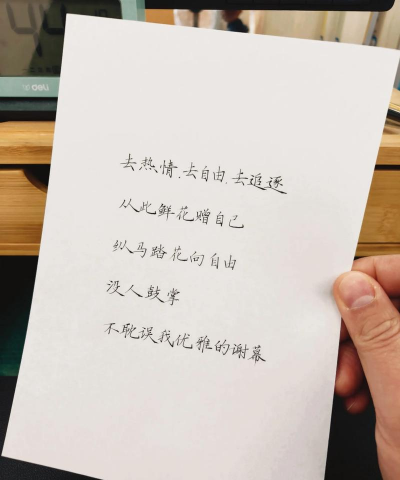 去热情、去自由、去追逐
从此鲜花赠自己
纵马踏花向自由
没人鼓掌
不耽误我优雅的谢幕